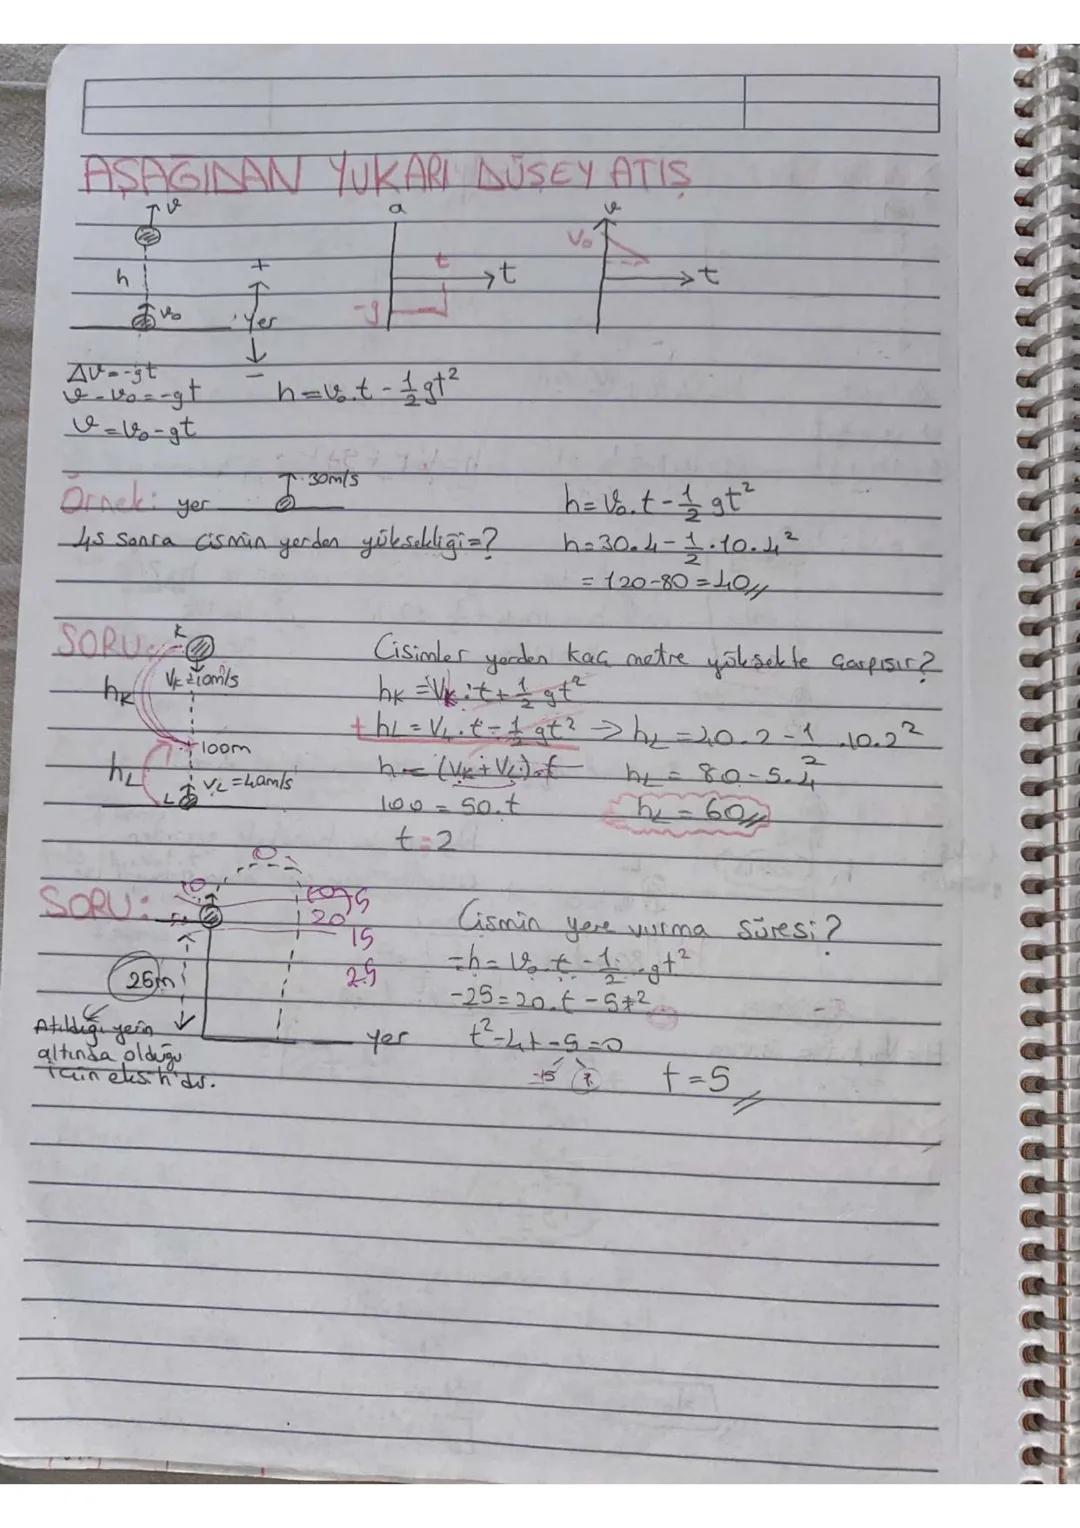 AŞAĞIDAN YUKARI DÜŞEY ATIŞ
v
h
v₀
+
yer
-
a
t
t
-g
v
V₀
t
Δv=-gt
v-v₀=-gt
v=v₀-gt
h=v₀.t-½gt²
Örnek: yer
30m/s
4s sonra cismin yerden yüksekliği=?
h=v₀.t-½gt²
h=30.4-½.10.4²
=120-80=40
SORU:
K
Vₖ=10m/s
hₖ
100m
h_L
V_L=40m/s
L
Cisimler yerden kaç metre yüksekte çarpışır?
hₖ=Vₖ.t+½gt²
+ h_L=V_L.t-½gt² → h_L=40.2-½.10.2²
h=(Vₖ+V_L).t h_L=80-5.4
100=50.t h_L=60
t=2
SORU:
0
10
20
15
25
25m
yer
Atıldığı yerin
altında olduğu
için eksi'dir.
Cismin yere vurma süresi?
-h=v₀.t-½.gt²
-25=20.t-5t²
t²-4t-5=0
t=5